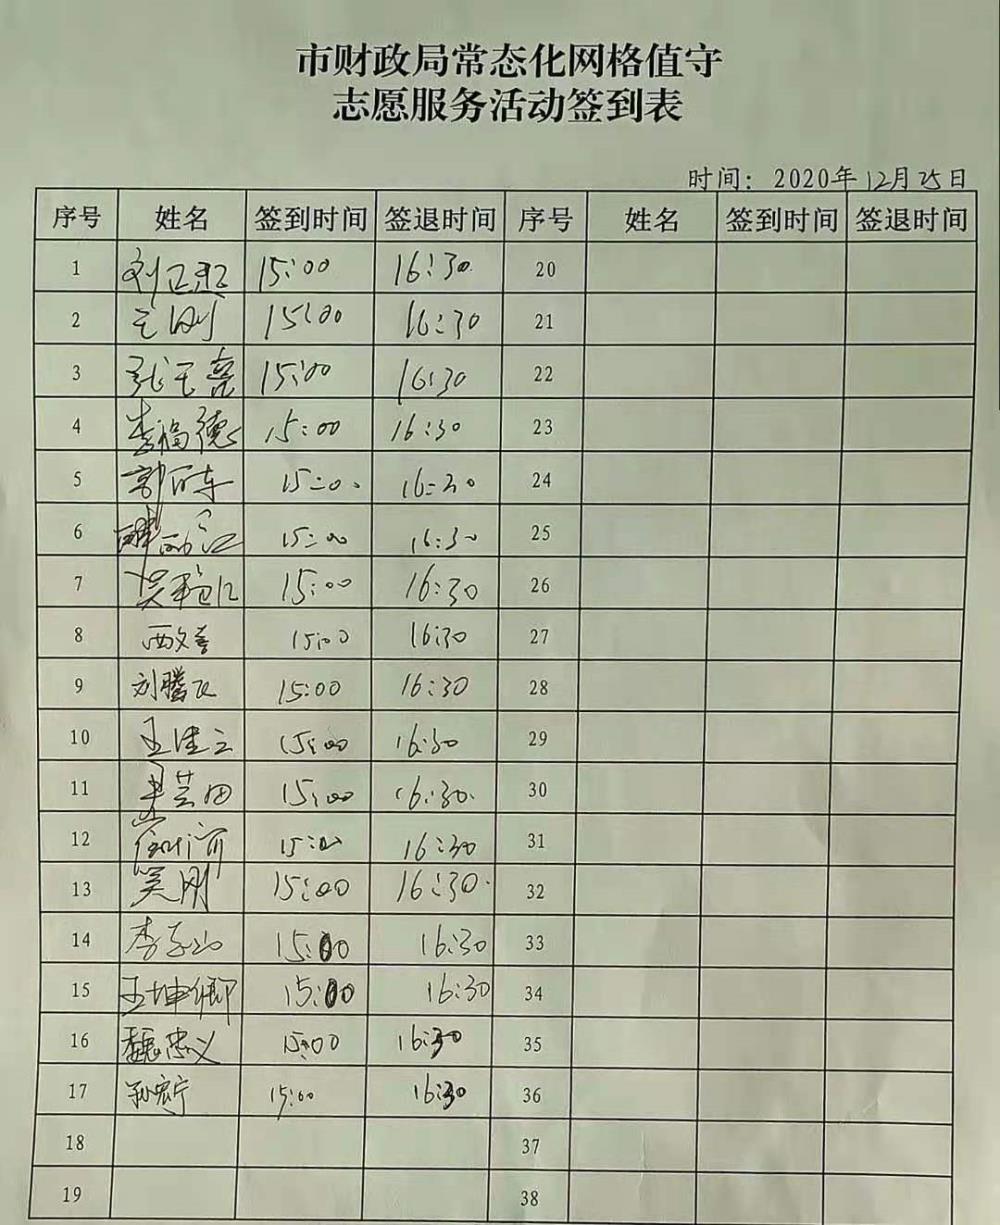 市财政局常态化网格值守
志愿服务活动签到表
时间：2020年12月25日
序号 姓名 签到时间 签退时间 序号 姓名 签到时间 签退时间
1 刘正 15:00 16:30 20
2 王刚 15:00 16:30 21
3 张玉亮 15:00 16:30 22
4 李福德 15:00 16:30 23
5 郭百车 15:00 16:30 24
6 15:00 16:30 25
7 吴 15:00 16:30 26
8 西文喜 15:00 16:30 27
9 刘腾飞 15:00 16:30 28
10 王佳云 15:00 16:30 29
11 芸田 15:00 16:30 30
12 15:00 16:30 31
13 吴刚 15:00 16:30 32
14 李 15:00 16:30 33
15 王坤卿 15:00 16:30 34
16 魏忠义 15:00 16:30 35
17 孙宏宁 15:00 16:30 36
18 37
19 38